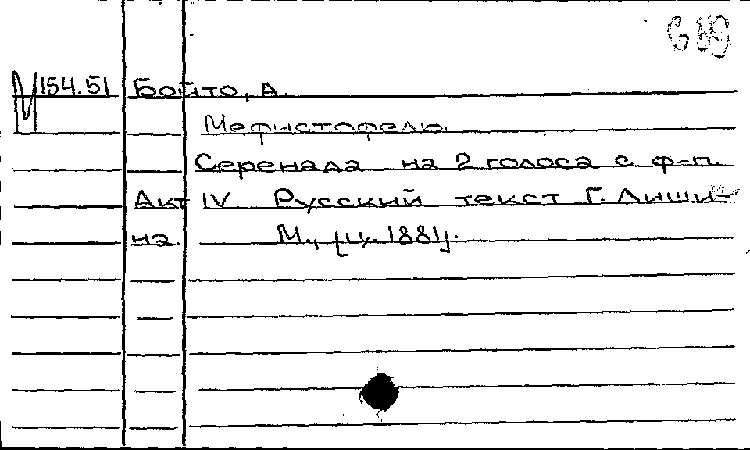 М 154.51 Бойто, А.
Мефистофель.
Серенада на 2 голоса с ф-п.
Акт IV Русский текст Г. Лиши-
на. М., [ц. 1881].